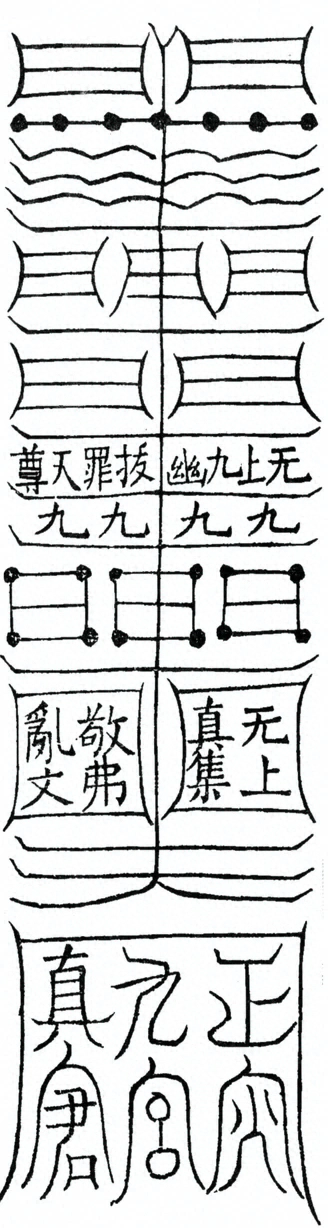 无上九幽拔罪天尊
九九九九
无上
真集
敬弗
亂文
正九真